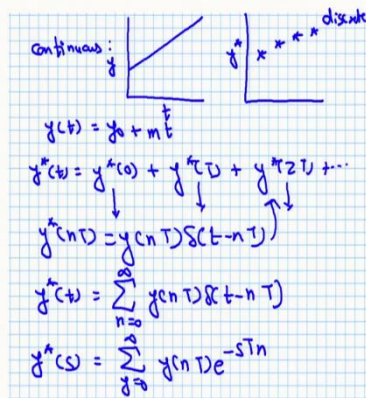 continuous: y t
y* discrete
y(t) = y₀ + mt
y*(t) = y*(0) + y*(T) + y*(2T) + ...
y*(nT) = y(nT)δ(t-nT)
y*(t) = ∑_{n=0}^{∞} y(nT)δ(t-nT)
y*(s) = ∑_{y=0}^{∞} y(nT)e^{-sTn}